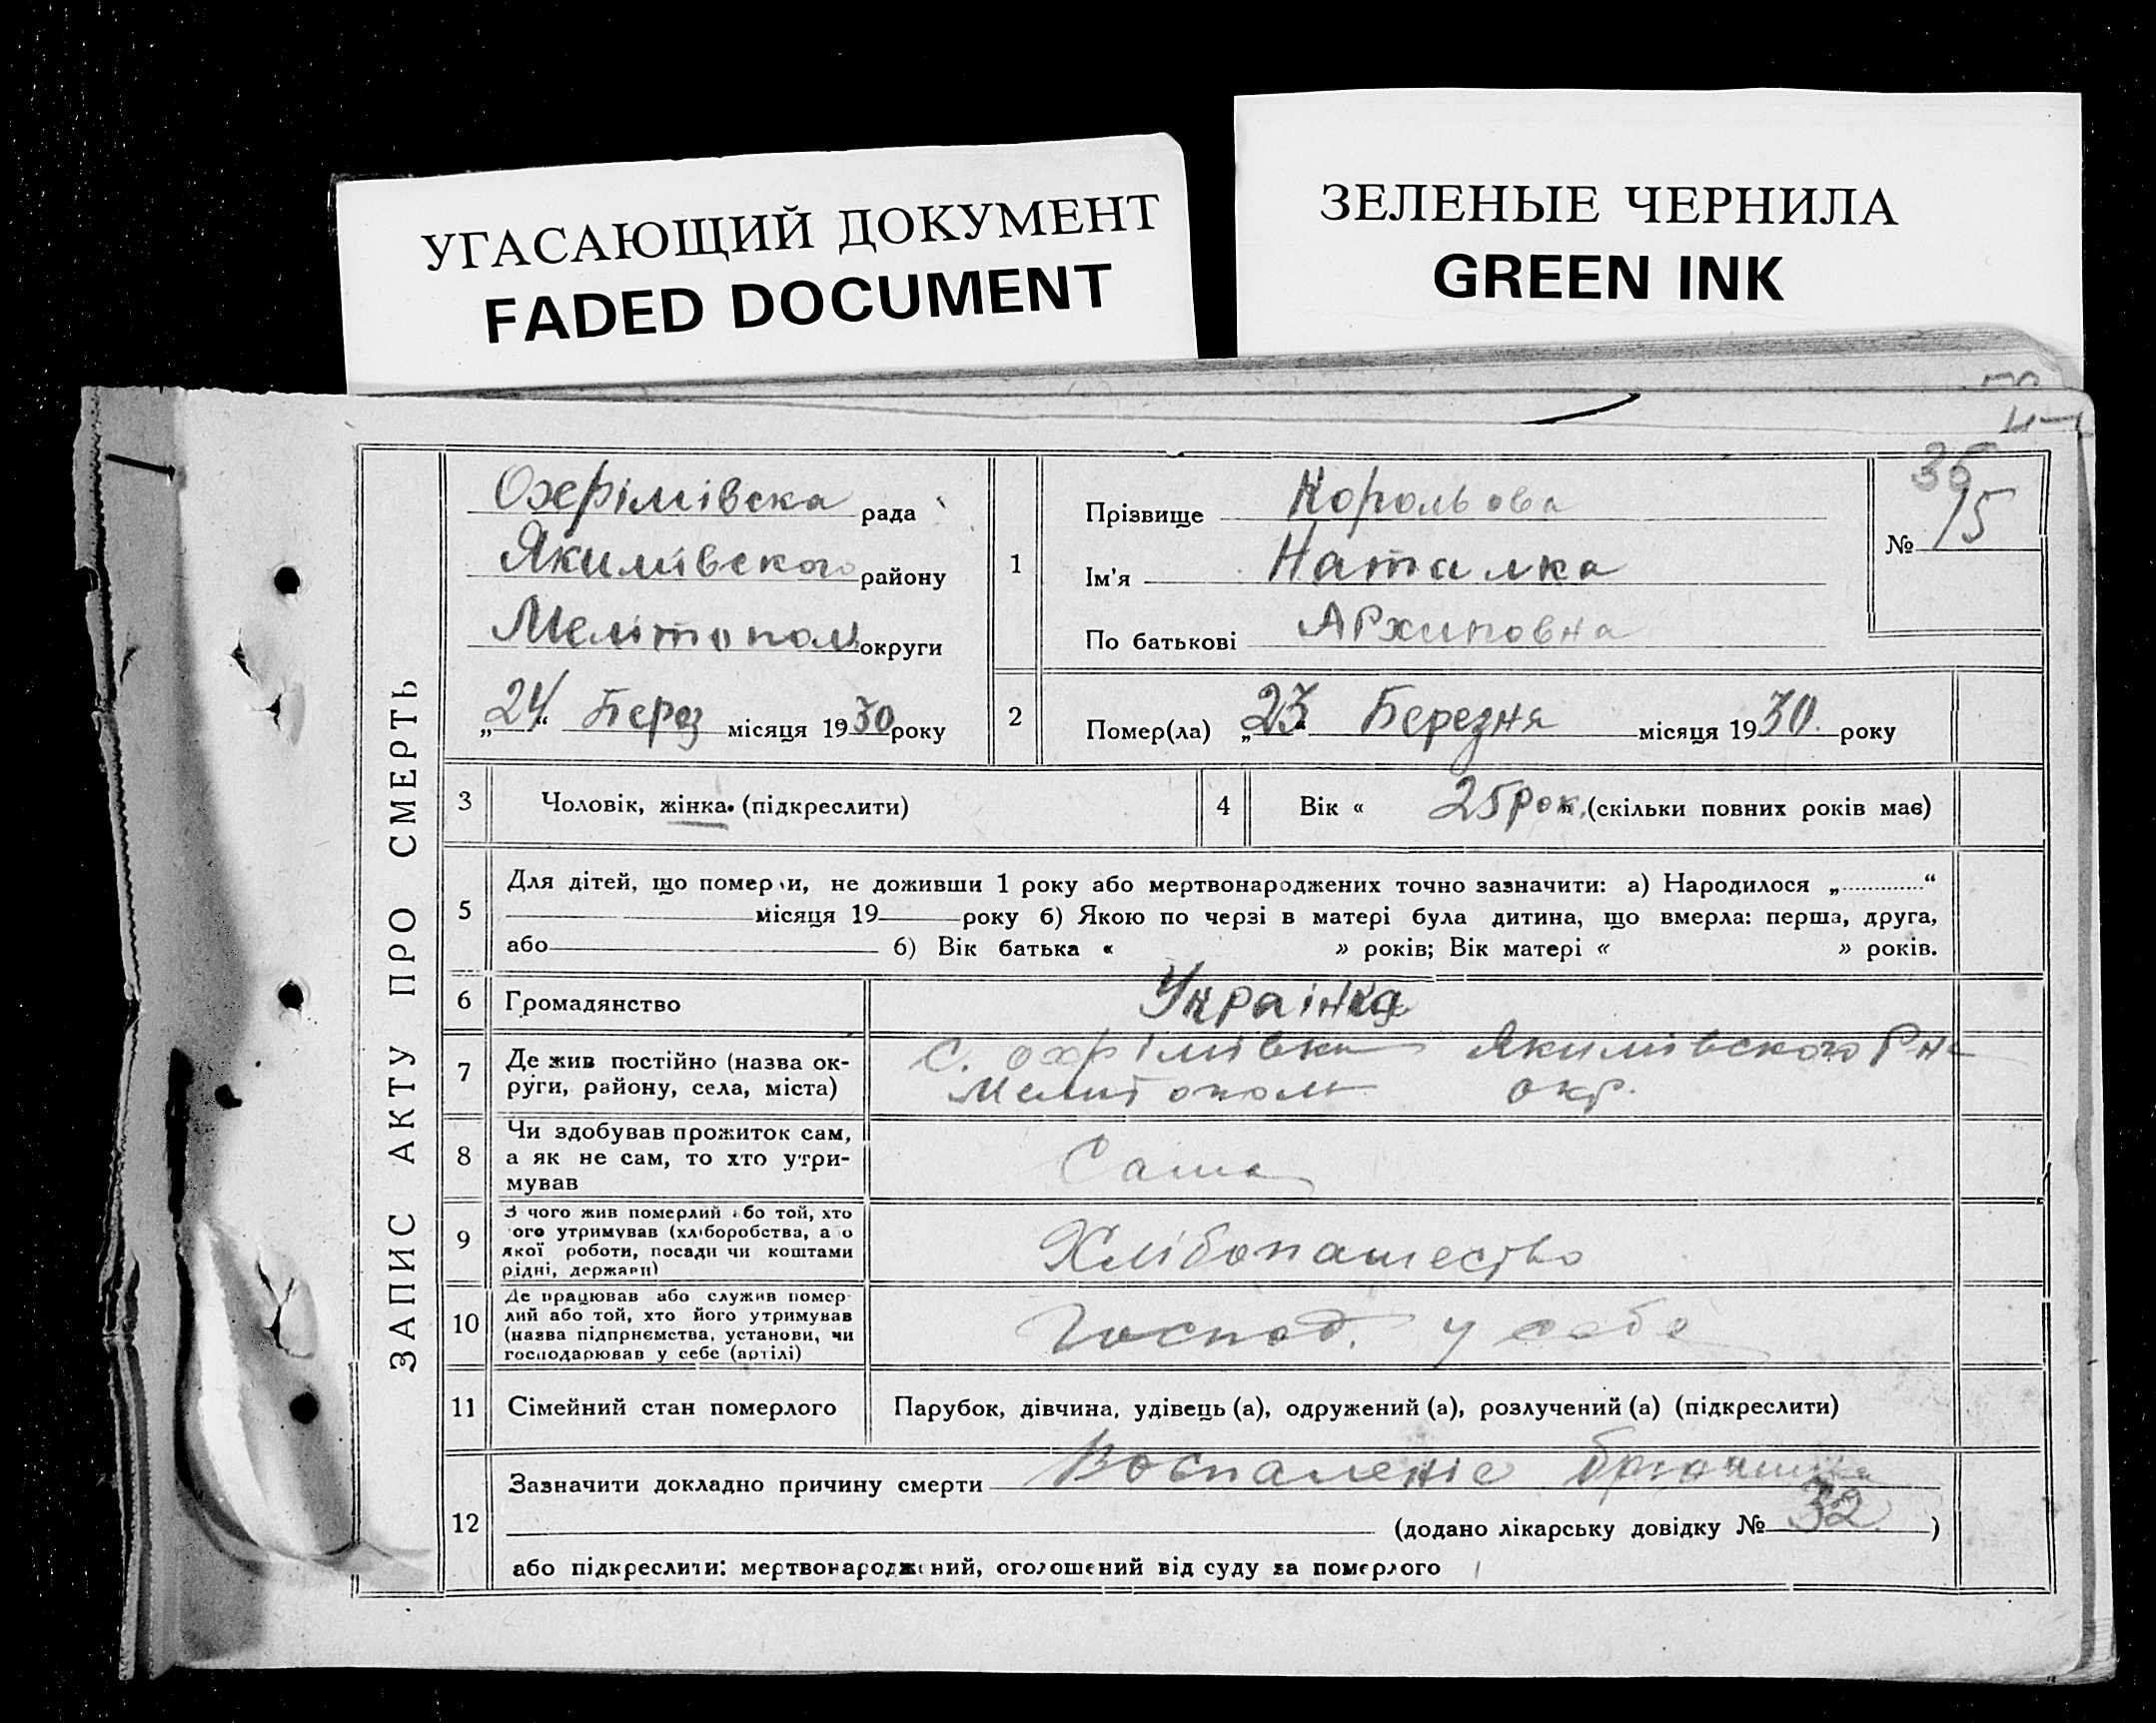 УГАСАЮЩИЙ ДОКУМЕНТ
FADED DOCUMENT
ЗЕЛЕНЫЕ ЧЕРНИЛА
GREEN INK
ЗАПИС АКТУ ПРО СМЕРТЬ
Охрімівска рада
Якимівского району
Мелітопол округи
„24“ Берез місяця 1930 року
35
№ 15
1
Прізвище Корольова
Ім'я Наталка
По батькові Архиповна
2 Помер(ла) „23“ Березня місяця 1930 року
3 Чоловік, жінка. (підкреслити)
4 Вік « 25 рок. (скільки повних років має)
5 Для дітей, що померли, не доживши 1 року або мертвонароджених точно зазначити: а) Народилося „ “
місяця 19 року б) Якою по черзі в матері була дитина, що вмерла: перша, друга,
або б) Вік батька « » років; Вік матері « » років.
6 Громадянство Українка
7 Де жив постійно (назва ок-
руги, району, села, міста)
с. Охрімівка Якимівского Рн
Мелитополь окр.
8 Чи здобував прожиток сам,
а як не сам, то хто утри-
мував
Сама
9 З чого жив померлий або той, хто
його утримував (хліборобства, або
якої роботи, посади чи коштами
рідні, держави)
Хлібопашество
10 Де працював або служив помер-
лий або той, хто його утримував
(назва підприємства, установи, чи
господарював у себе (артілі)
Господ. у себе
11 Сімейний стан померлого Парубок, дівчина, удівець (а), одружений (а), розлучений (а) (підкреслити)
12 Зазначити докладно причину смерти Воспаленіе брюшины
(додано лікарську довідку № 32 )
або підкреслити: мертвонароджений, оголошений від суду за померлого